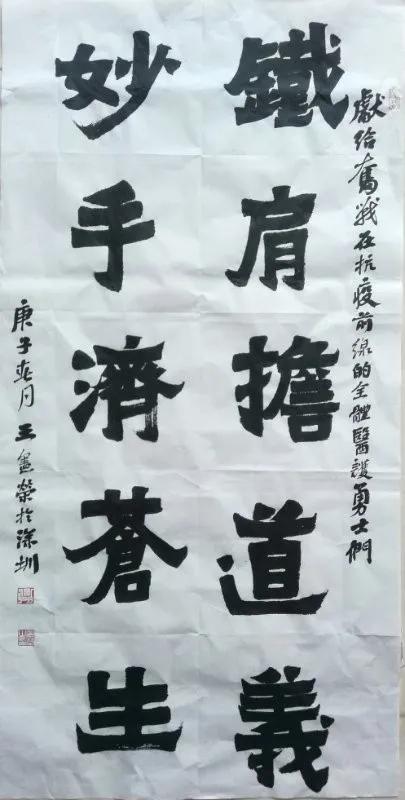 獻给奮戰在抗疫前線的全體醫護勇士們
鐵肩擔道義
妙手濟蒼生
庚子春月王金榮於深圳